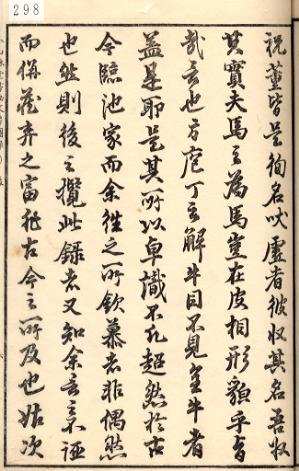 298
祝董皆是徇名吠虛者彼收其名吾收
其實夫馬之為馬豈在皮相形貌乎旨
哉言也方庖丁之解牛目不見全牛者
蓋是耶是其所以卓識不凡超然於古
今臨池家而余往之所欽慕者非偶然
也然則後之攬此錄者又知余言之不誣
而儲藏弆之富非古今之所及也姑次